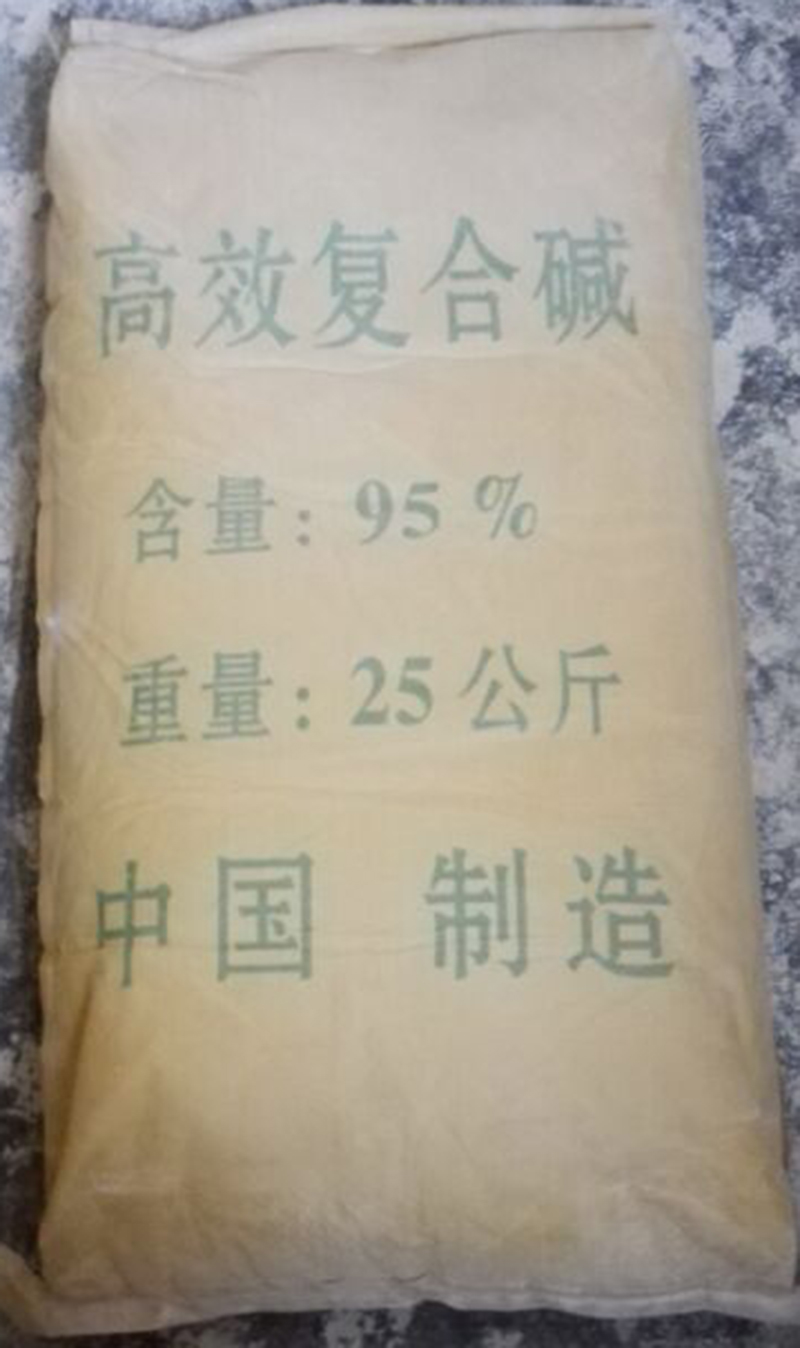 高效复合碱
含量：95%
重量：25公斤
中国 制造